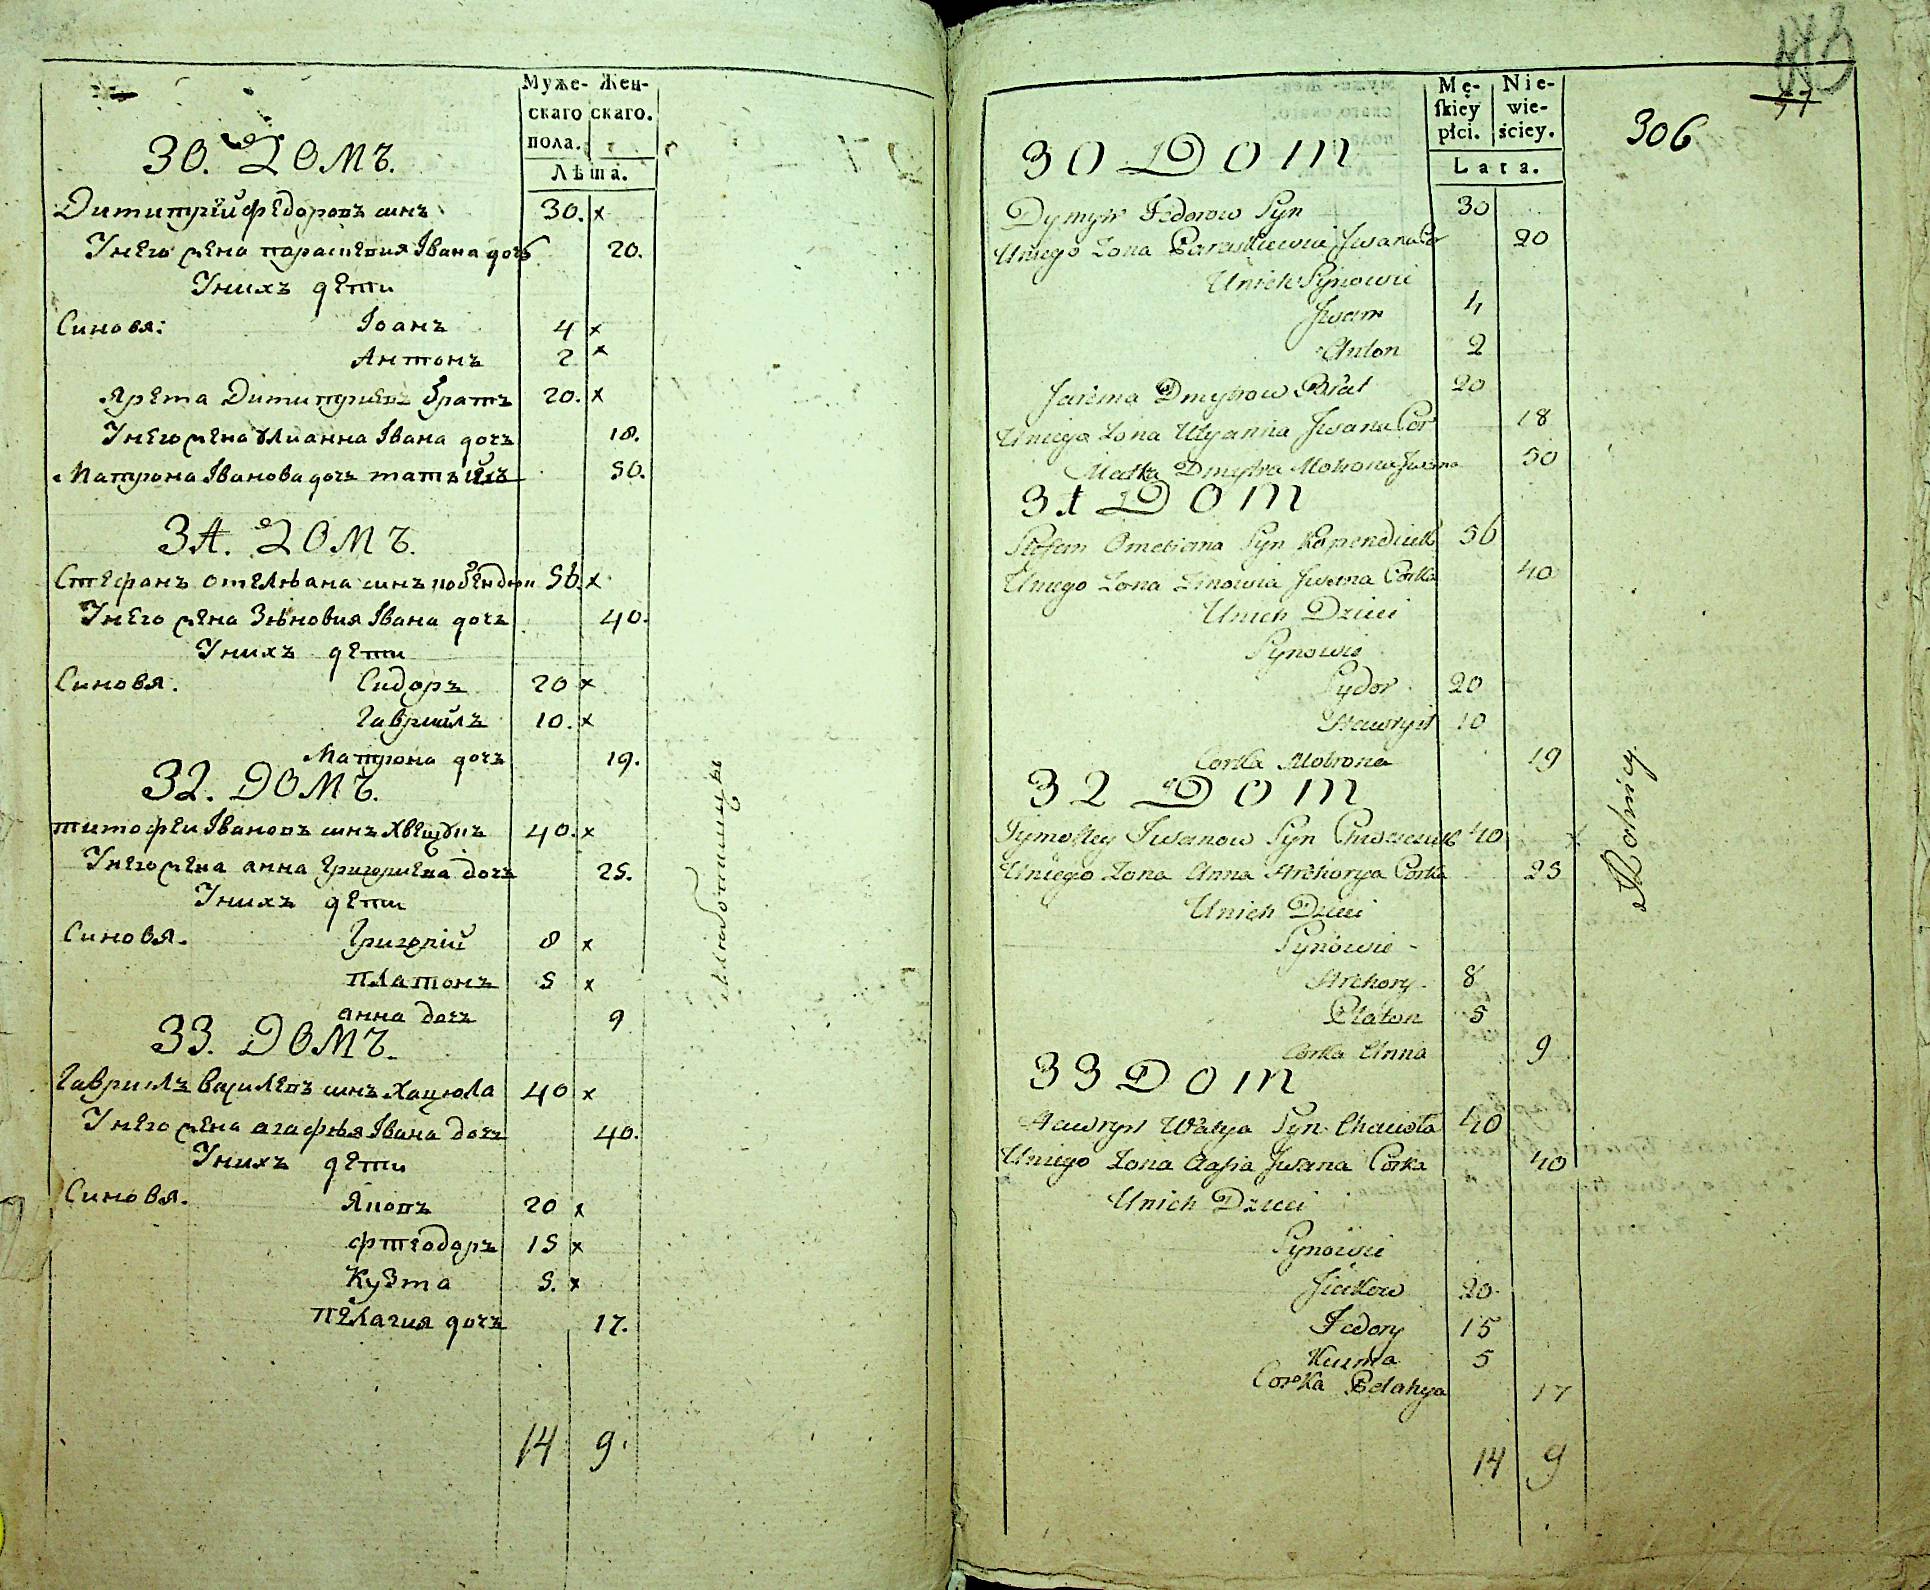 Муже- Жен-
скаго скаго.
пола.
Лѣта.
30. Домъ.
Димитрій Федоровъ синъ 30. x
Унего жена параскевия Івана дочь 20.
Унихъ дети
Синовя: Іоанъ 4 x
Антонъ 2 x
Ярема Димитриевъ братъ 20. x
Унего жена Улианна Івана дочъ 18.
Матрона Іванова дочъ 50.
31. Домъ.
Стефанъ омелѣана синъ 56. x
Унего жена Зѣновия Івана дочъ 40.
Унихъ дети
Синовя. Сидоръ 20 x
Гавриилъ 10. x
Матрона дочъ 19.
32. Домъ.
тимофеи Івановъ синъ 40. x
Унего жена анна Григориева дочъ 25.
Унихъ дети
Синовя. Григорій 8 x
платонъ 5 x
анна дочъ 9
33. Домъ.
Гавриилъ василевъ синъ хацюла 40 x
Унего жена агафѣя Івана дочъ 40.
Унихъ дети
Синовя. Яковъ 20 x
фтеодоръ 15 x
Кузма 5. x
пелагия дочъ 17.
14 9.
Mę- Nie-
skiey wie-
płci. ściey.
Lata.
306
30 Dom
Dymytr Fedorow Syn 30
Uniego Zona Paraskiewia Jwana Cor 20
Unich Synowie
Jwan 4
Anton 2
Jarema Dmytrow Brat 20
Uniego Zona Ulyanna Jwana Cor 18
Matka Dmytra Motrona Jwana 50
31 Dom
Stefan Omeliana Syn 56
Uniego Zona Zinowia Jwana Corka 40
Unich Dzieci
Synowie
Sydor 20
Hawryił 10
Corka Motrona 19
32 Dom
Tymofiey Jwanow Syn 40
Uniego Zona Anna Hrehorya Corka 25
Unich Dzieci
Synowie
Hrehory 8
Platon 5
Corka Anna 9
33 Dom
Hawrył Wasyla Syn 40
Uniego Zona Agafia Jwana Corka 40
Unich Dzieci
Synowie
Jakow 20
Fedory 15
Kuzma 5
Corka Pelahya 17
14 9
Rolnicy